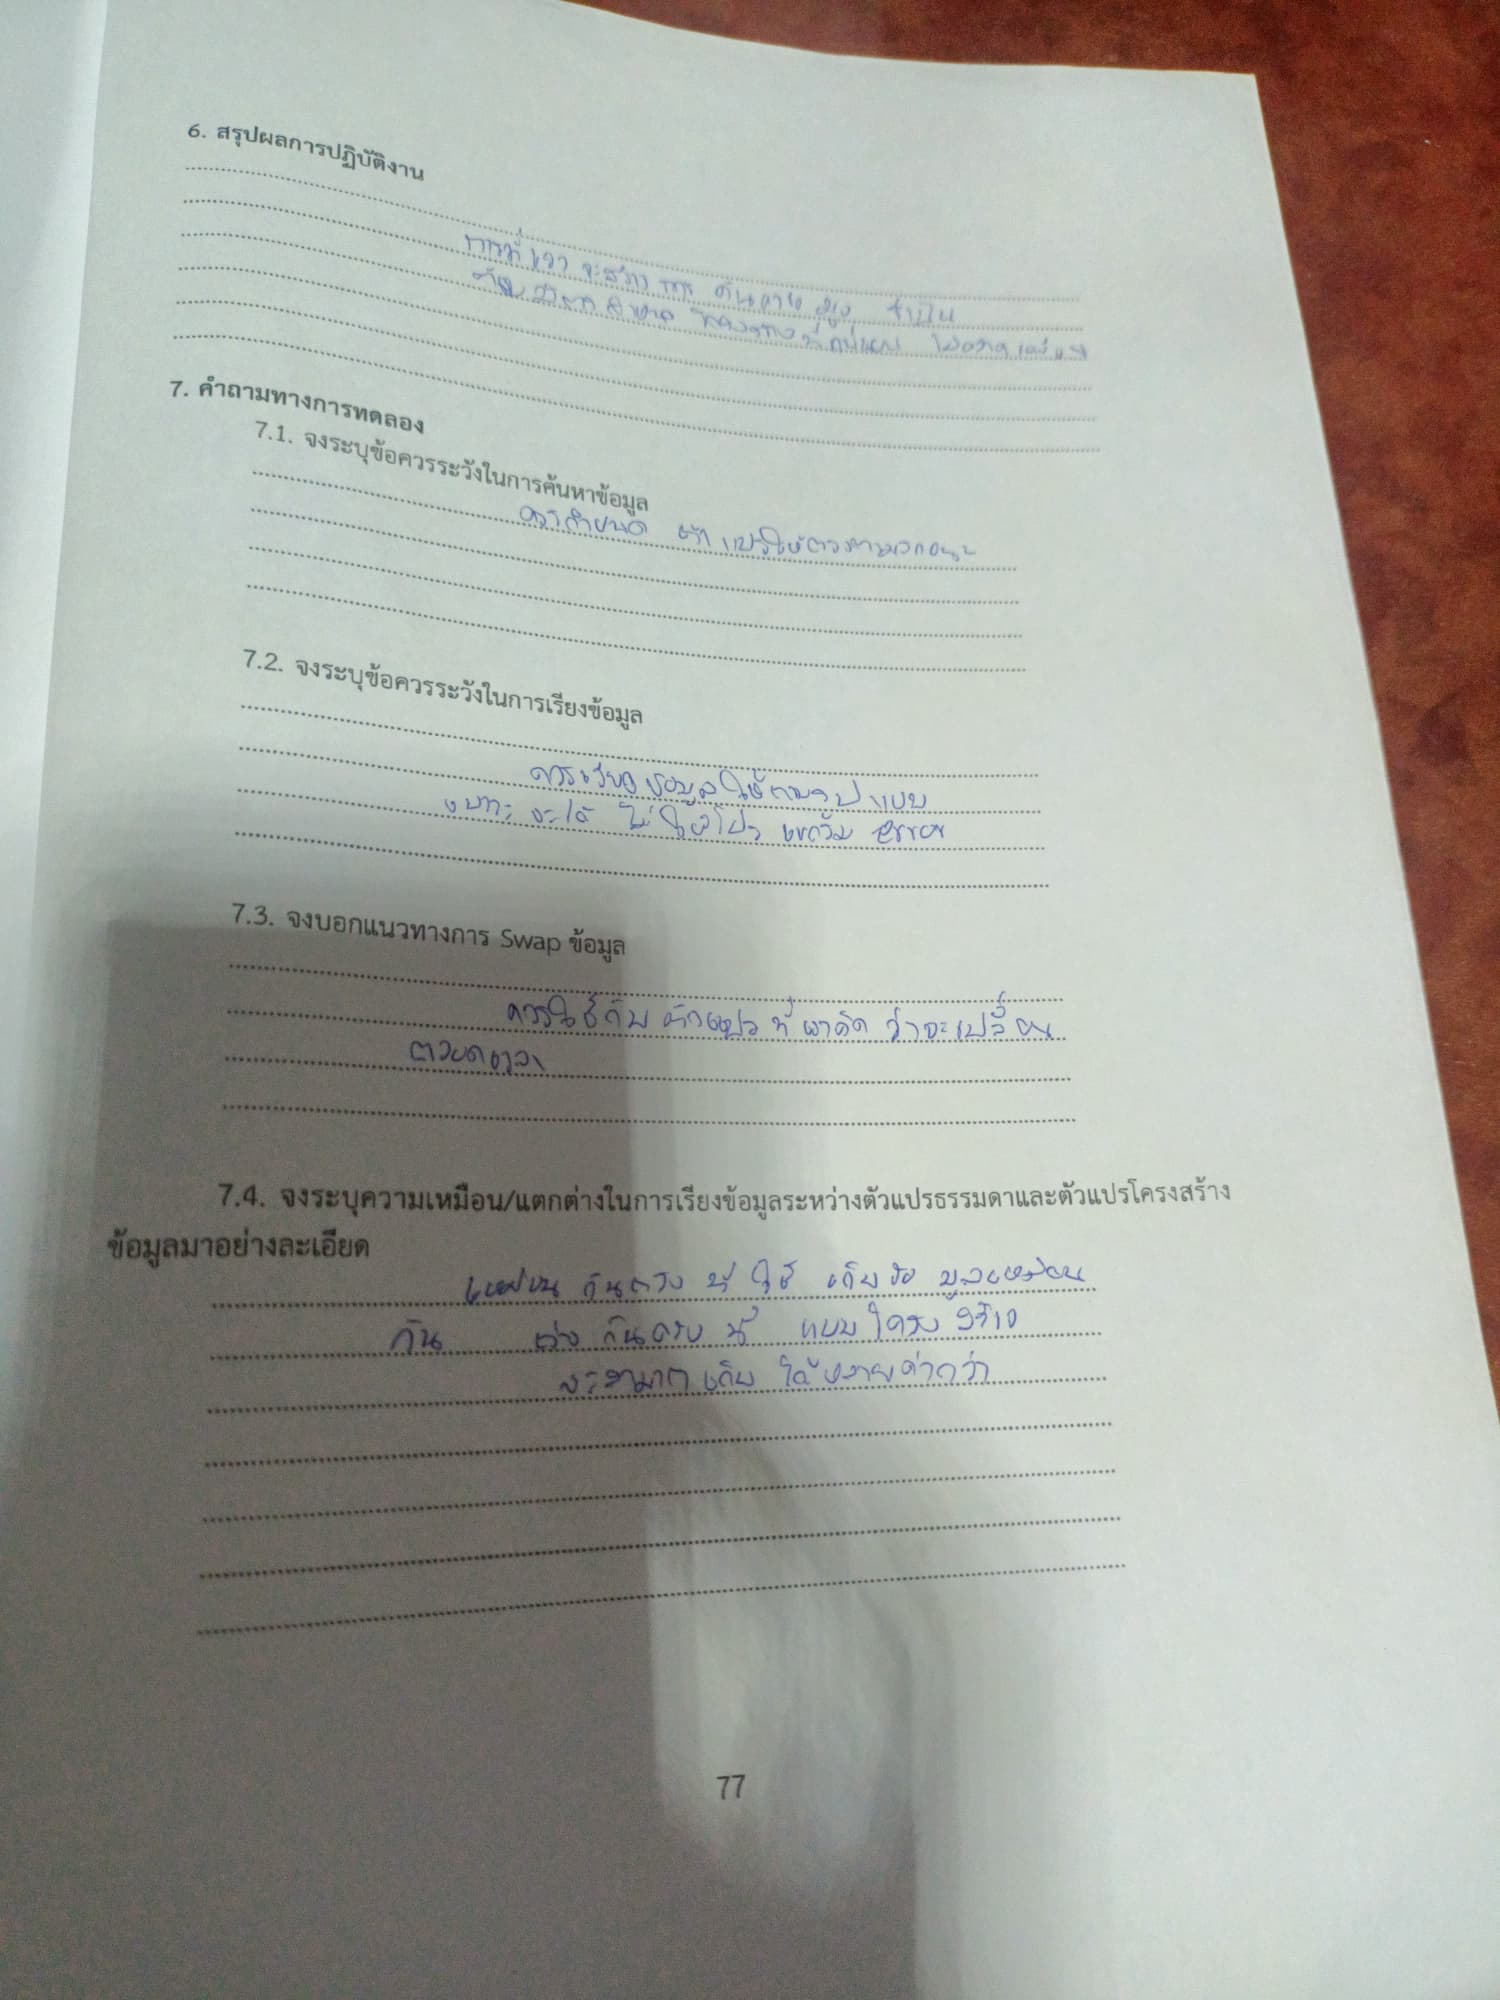 6. สรุปผลการปฏิบัติงาน
การที่เรา จะสร้าง การ ค้นหาข้อมูล
7. คำถามทางการทดลอง
7.1. จงระบุข้อควรระวังในการค้นหาข้อมูล
ควรกำหนด ตัวแปรให้ตรงตาม
7.2. จงระบุข้อควรระวังในการเรียงข้อมูล
ควรเรียงข้อมูลให้ตามรูปแบบ
จะได้ ไม่ให้โปรแกรม error
7.3. จงบอกแนวทางการ Swap ข้อมูล
ควรใช้กับ ตัวแปร ที่เราคิด ว่าจะเปลี่ยน
ตลอดเวลา
7.4. จงระบุความเหมือน/แตกต่างในการเรียงข้อมูลระหว่างตัวแปรธรรมดาและตัวแปรโครงสร้าง
ข้อมูลมาอย่างละเอียด
เหมือน กันตรง ที่ ใช้ เก็บข้อ มูลเหมือน
กัน ต่าง กันตรง ที่ แบบโครงสร้าง
จะสามารถ เก็บ ได้ หลายค่ากว่า
77